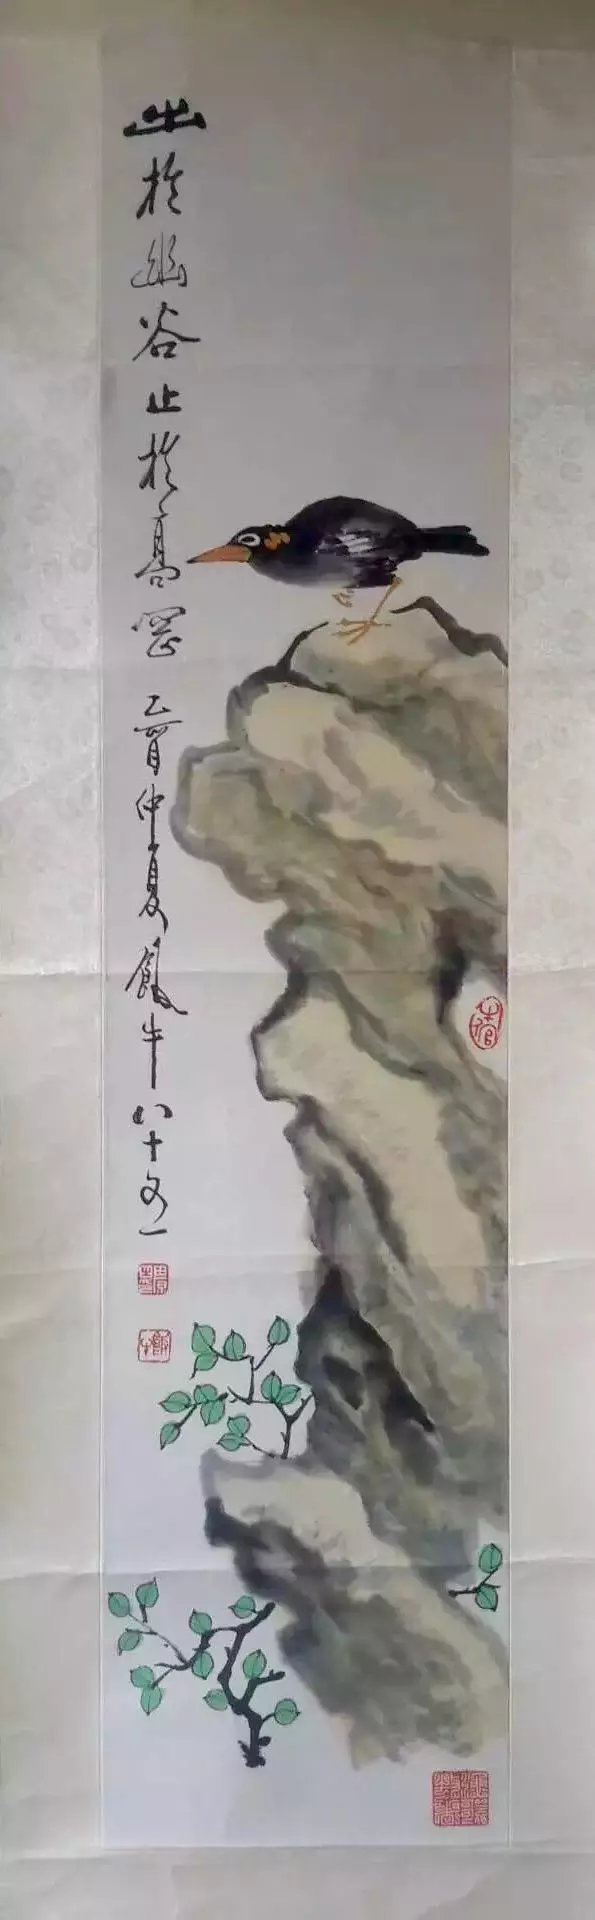 出於幽谷止於高岡 乙酉仲夏飯牛八十又一